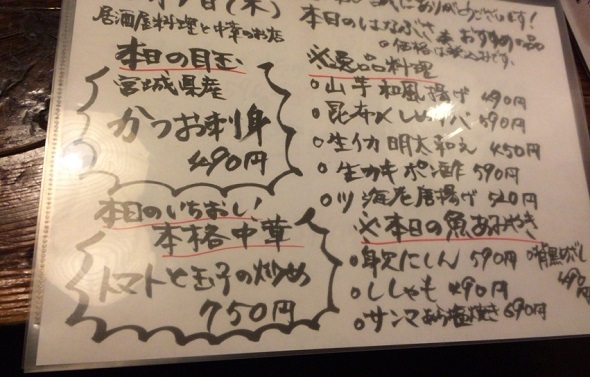 日(木)
居酒屋料理と中華のお店
本日の目玉
宮城県産
かつお刺身
490円
本日のいちおし!
本格中華
トマトと玉子の炒め
750円
ありがとうございます!
本日のはなかざ おすすめの品
○価格は税込みです。
※逸品料理
○山芋和風揚げ 490円
○昆布〆しめサバ 590円
○生イカ明太和え 450円
○生カキポン酢 590円
○ツブ海老唐揚げ 520円
※本日の魚あみやき
○身欠にしん 590円
○ししゃも 490円
○サンマあら塩焼き 690円
490円